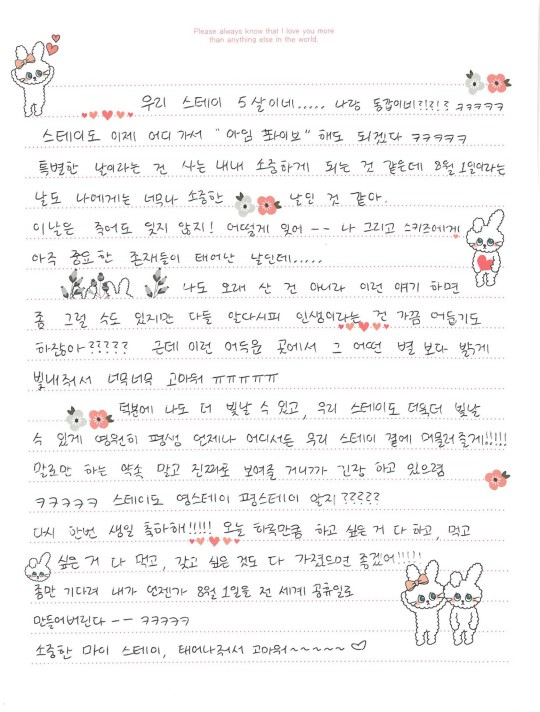 Please always know that I love you more
than anything else in the world.
우리 스테이 5살이네..... 나랑 동갑이네?!?!? ㅋㅋㅋㅋㅋ
스테이도 이제 어디 가서 "아임 퐈이브" 해도 되겠다 ㅋㅋㅋㅋㅋ
특별한 날이라는 건 사는 내내 소중하게 되는 건 같은데 8월 1일이라는
날도 나에게는 너무나 소중한 날인 것 같아.
이날은 죽어도 잊지 않지! 어떻게 잊어 -- 나 그리고 스키즈에게
아직 중요한 존재들이 태어난 날인데.....
나도 오래 산 건 아니라 이런 얘기 하면
좀 그럴 수도 있지만 다들 알다시피 인생이라는 건 가끔 어둡기도
하잖아????? 근데 이런 어두운 곳에서 그 어떤 별 보다 밝게
빛내줘서 너무너무 고마워 ㅠㅠㅠㅠㅠ
덕분에 나도 더 빛날 수 있고, 우리 스테이도 더욱더 빛날
수 있게 영원히 평생 언제나 어디서든 우리 스테이 곁에 머물러줄게!!!!!
말로만 하는 약속 말고 진짜로 보여줄 거니까 긴장 하고 있으렴
ㅋㅋㅋㅋㅋ 스테이도 영스테이 평스테이 알지?????
다시 한번 생일 축하해!!!!! 오늘 하루만큼 하고 싶은 거 다 하고, 먹고
싶은 거 다 먹고, 갖고 싶은 것도 다 가졌으면 좋겠어!!!!!
좀만 기다려 내가 언젠가 8월 1일을 전 세계 공휴일로
만들어버린다 -- ㅋㅋㅋㅋㅋ
소중한 마이 스테이, 태어나줘서 고마워~~~~~ ♡